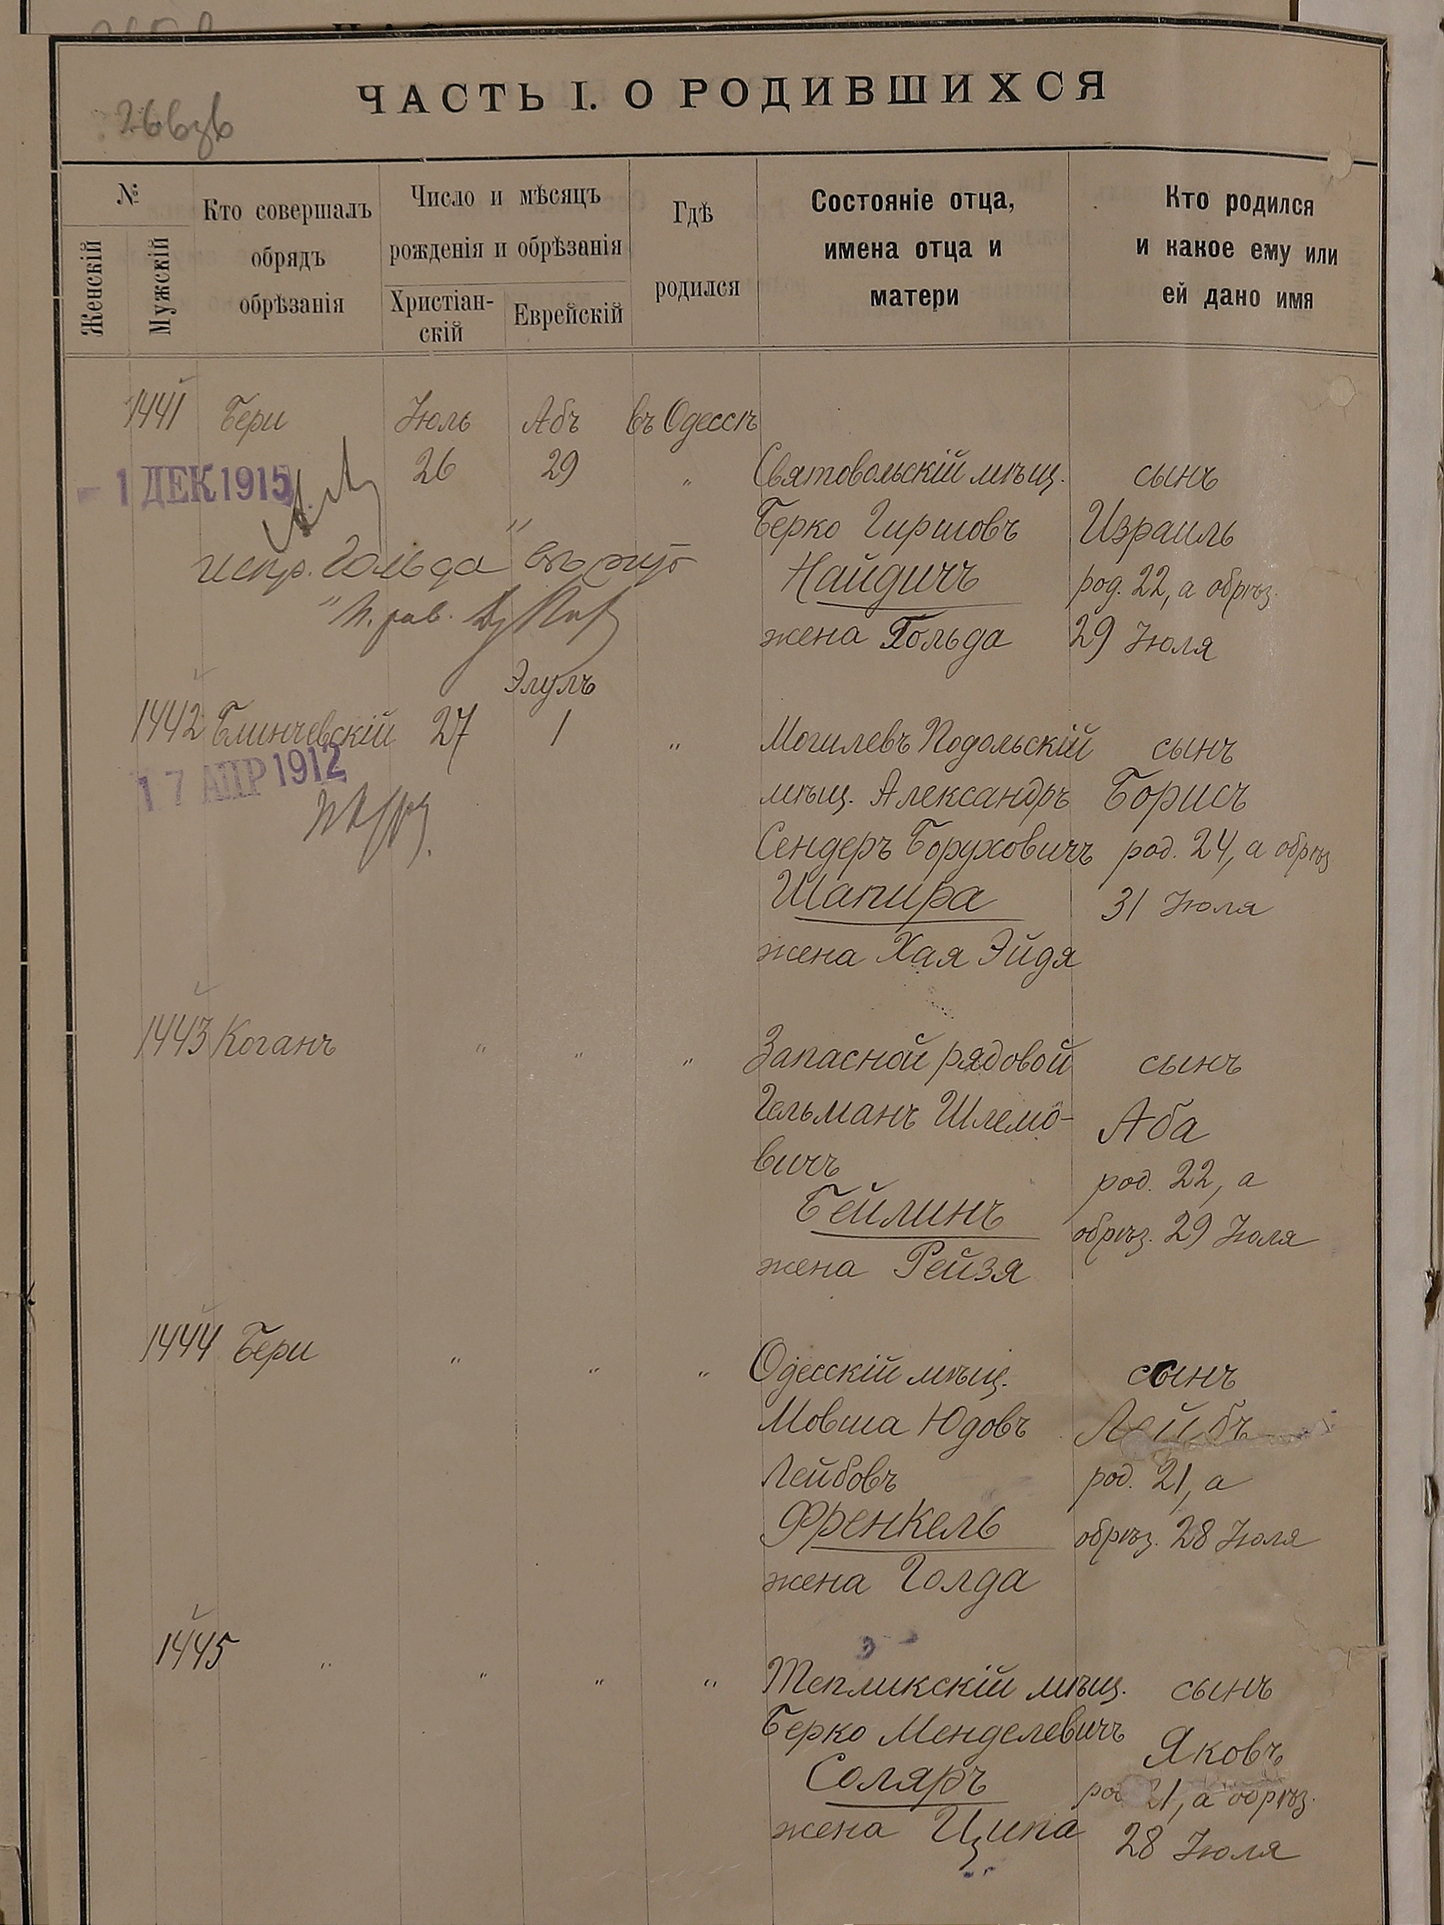 ЧАСТЬ I. О РОДИВШИХСЯ
№
Женскій
Мужскій
Кто совершалъ
обрядъ
обрѣзанія
Число и мѣсяцъ
рожденія и обрѣзанія
Христіан-
скій
Еврейскій
Гдѣ
родился
Состояніе отца,
имена отца и
матери
Кто родился
и какое ему или
ей дано имя
1441 Бери Іюль Абъ въ Одессѣ
26 29 " Святовольскій мѣщ. сынъ
1 ДЕК 1915
Берко Гиршовъ Израиль
испр. "Гольда"
Найдичъ род. 22, а обрѣз.
жена Гольда 29 Іюля
Элулъ
1442 Блинчевскій 27 1 " Могилевъ Подольскій сынъ
17 АПР 1912
мѣщ. Александръ Борисъ
Сендеръ Боруховичъ род. 24, а обрѣз
Шапира 31 Іюля
жена Хая Эйдя
1443 Коганъ " " " Запасной рядовой сынъ
Гельманъ Шлемо- Аба
вичъ род. 22, а
Бейлинъ обрѣз. 29 Іюля
жена Рейзя
1444 Бери " " " Одесскій мѣщ. сынъ
Мовша Юдовъ Лейбъ
Лейбовъ род. 21, а
Френкель обрѣз. 28 Іюля
жена Голда
1445 " " " " Тепликскій мѣщ. сынъ
Берко Менделевичъ Яковъ
Соляръ род 21, а обрѣз.
жена Ципа 28 Іюля